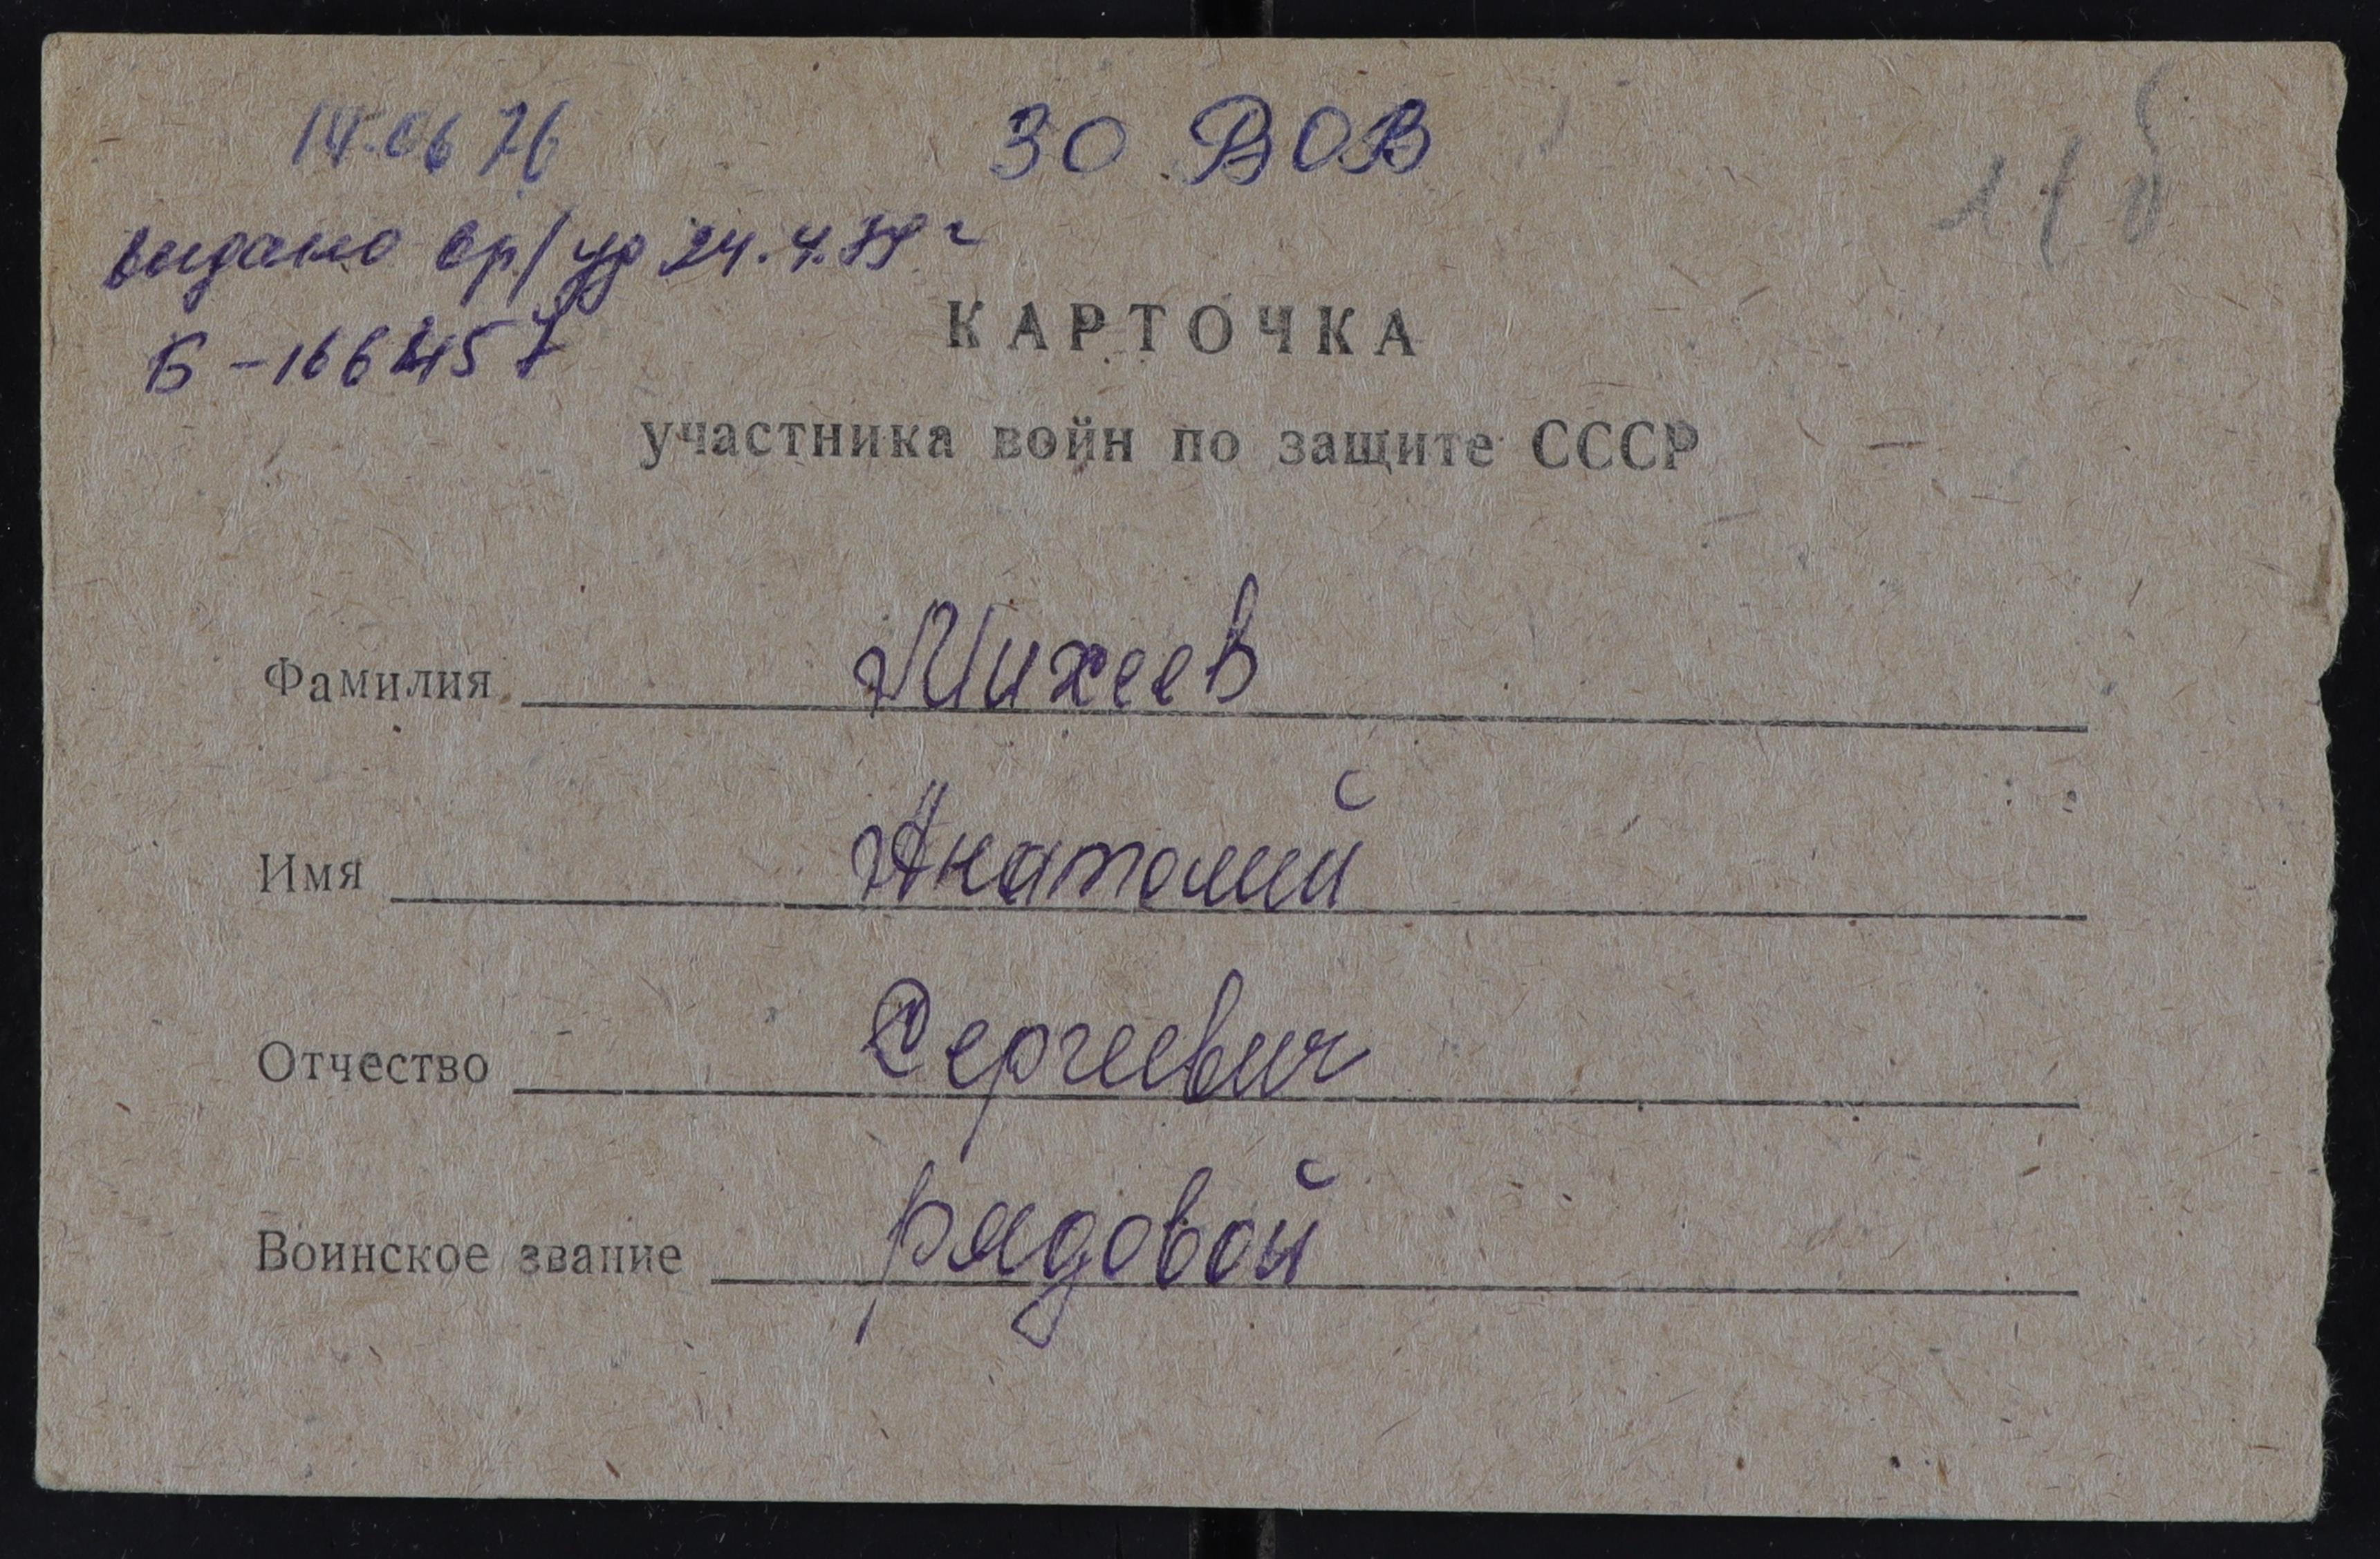 14.06 76
30 ВОВ
118
выдано вр/уд 24.4.79 г
Б-166
КАРТОЧКА
участника войн по защите СССР
Фамилия Михеев
Имя Анатолий
Отчество Сергеевич
Воинское звание рядовой